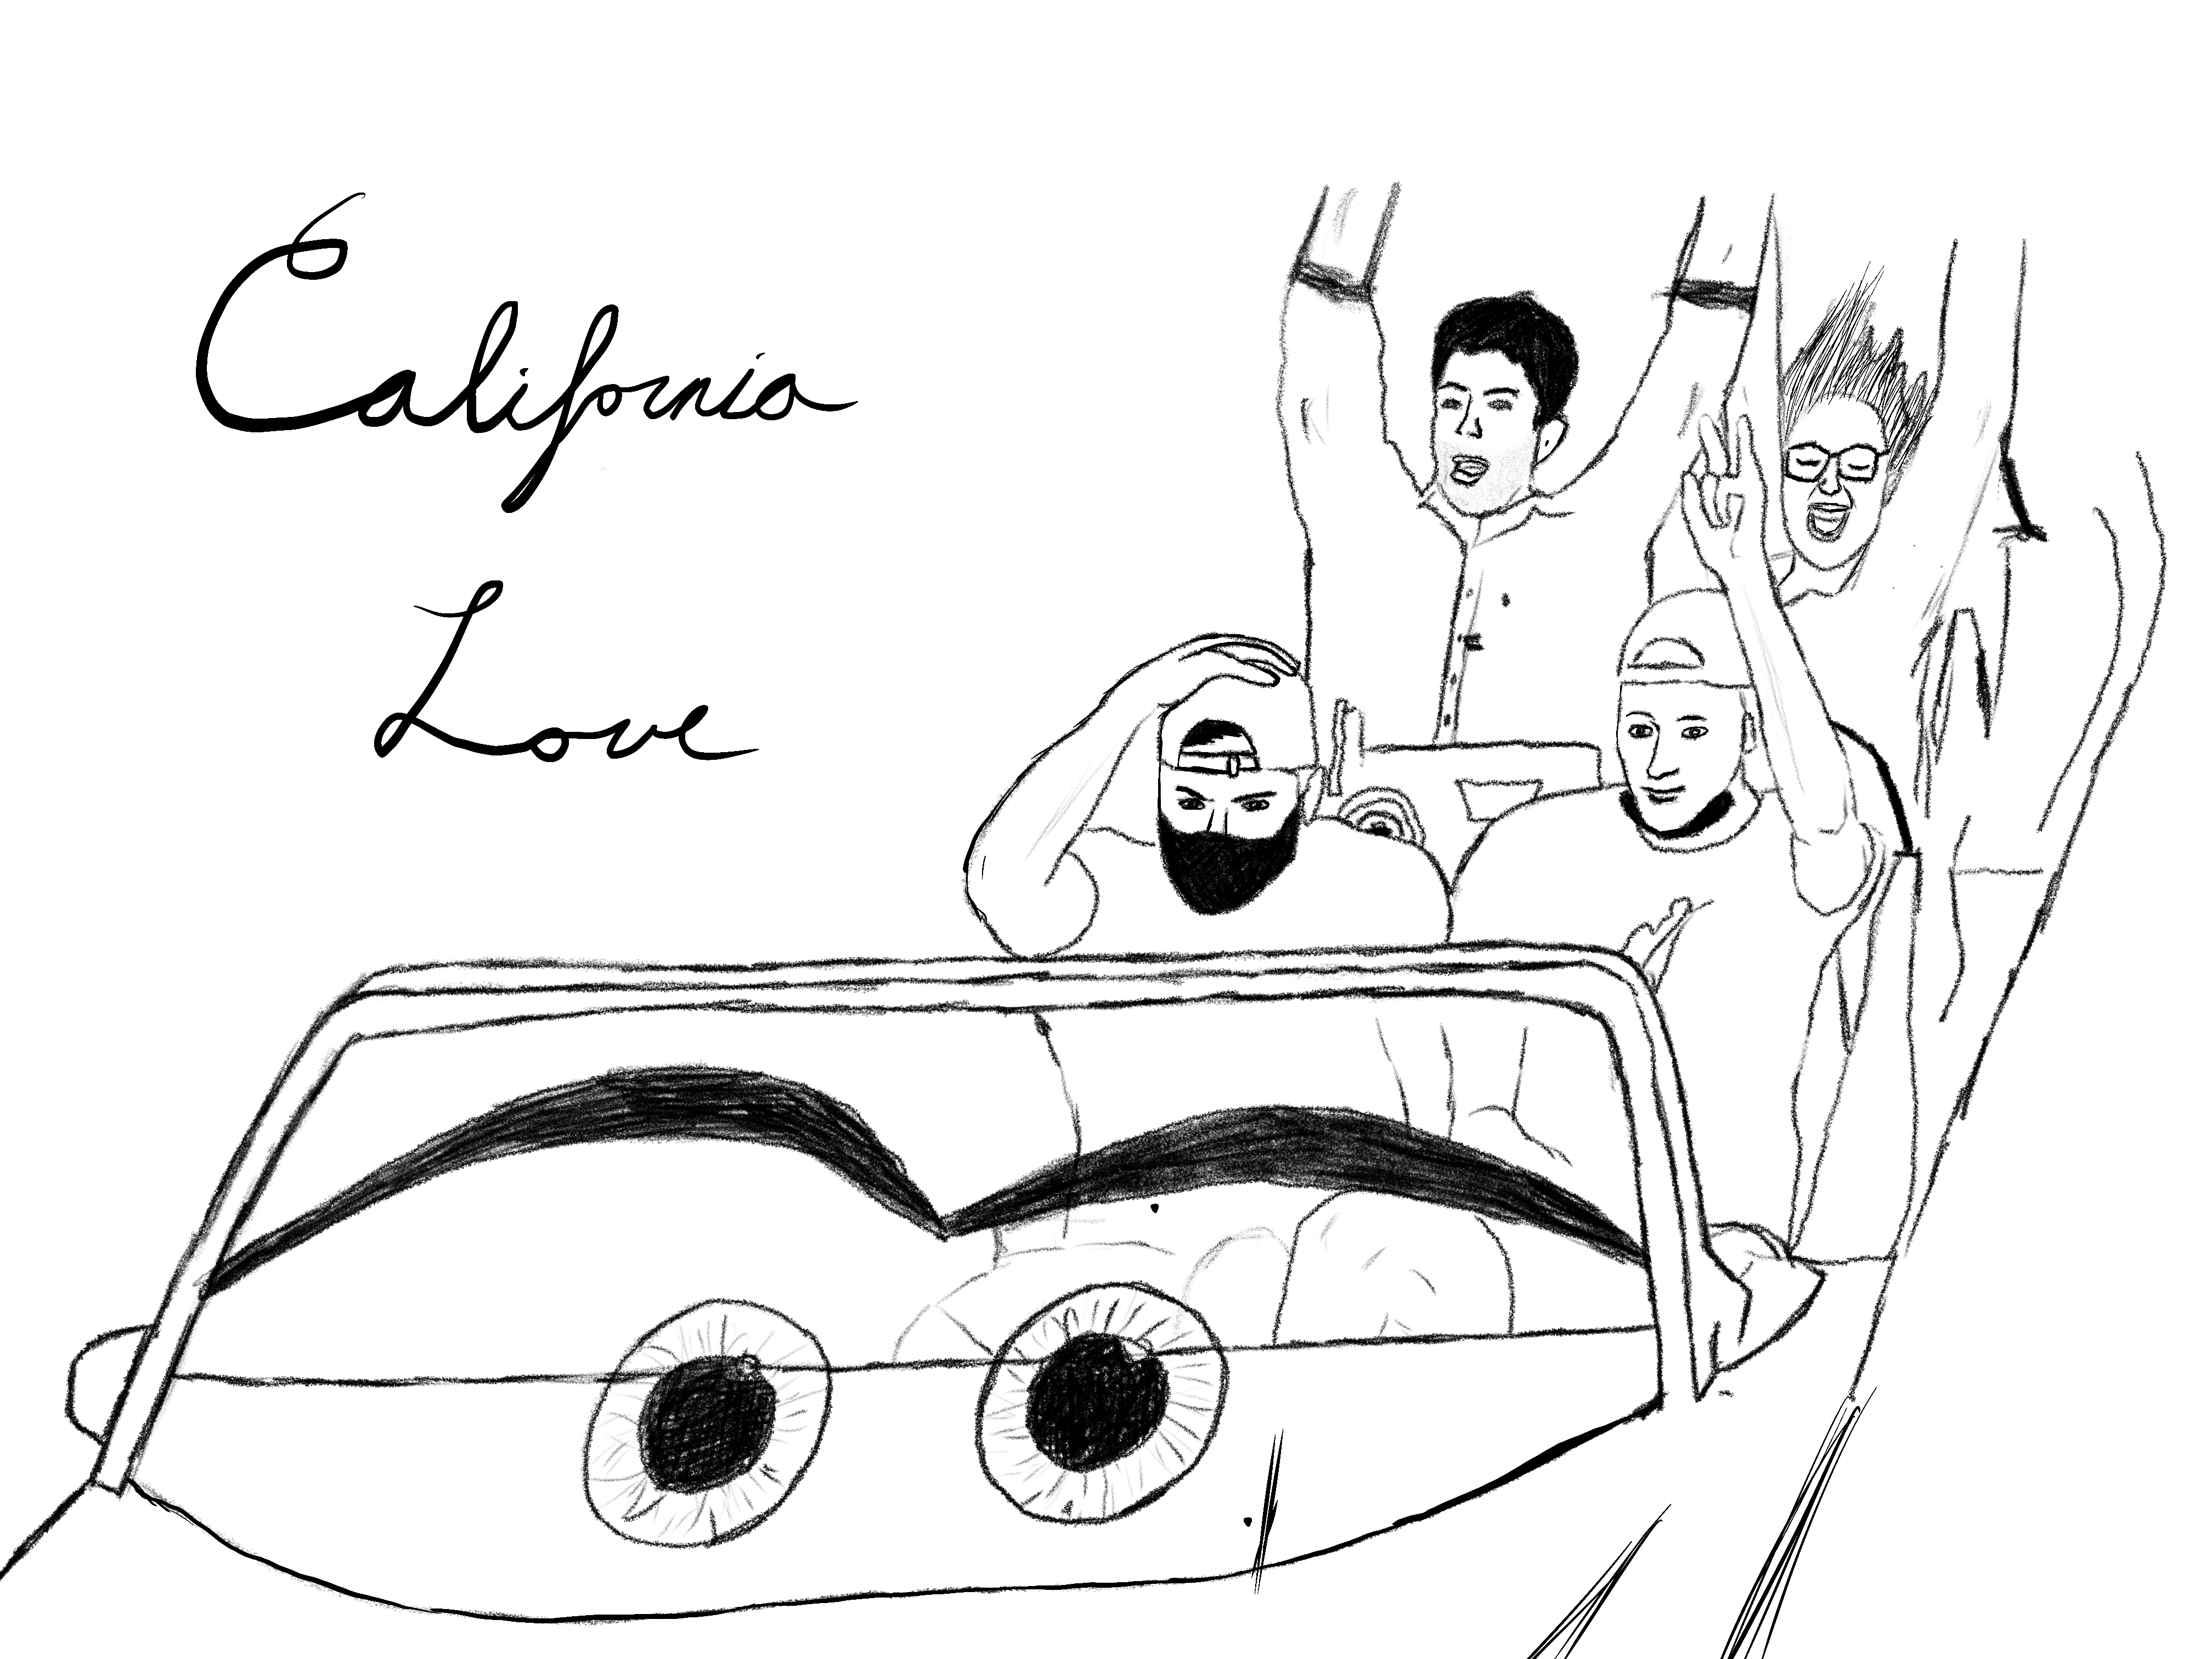 California
Love